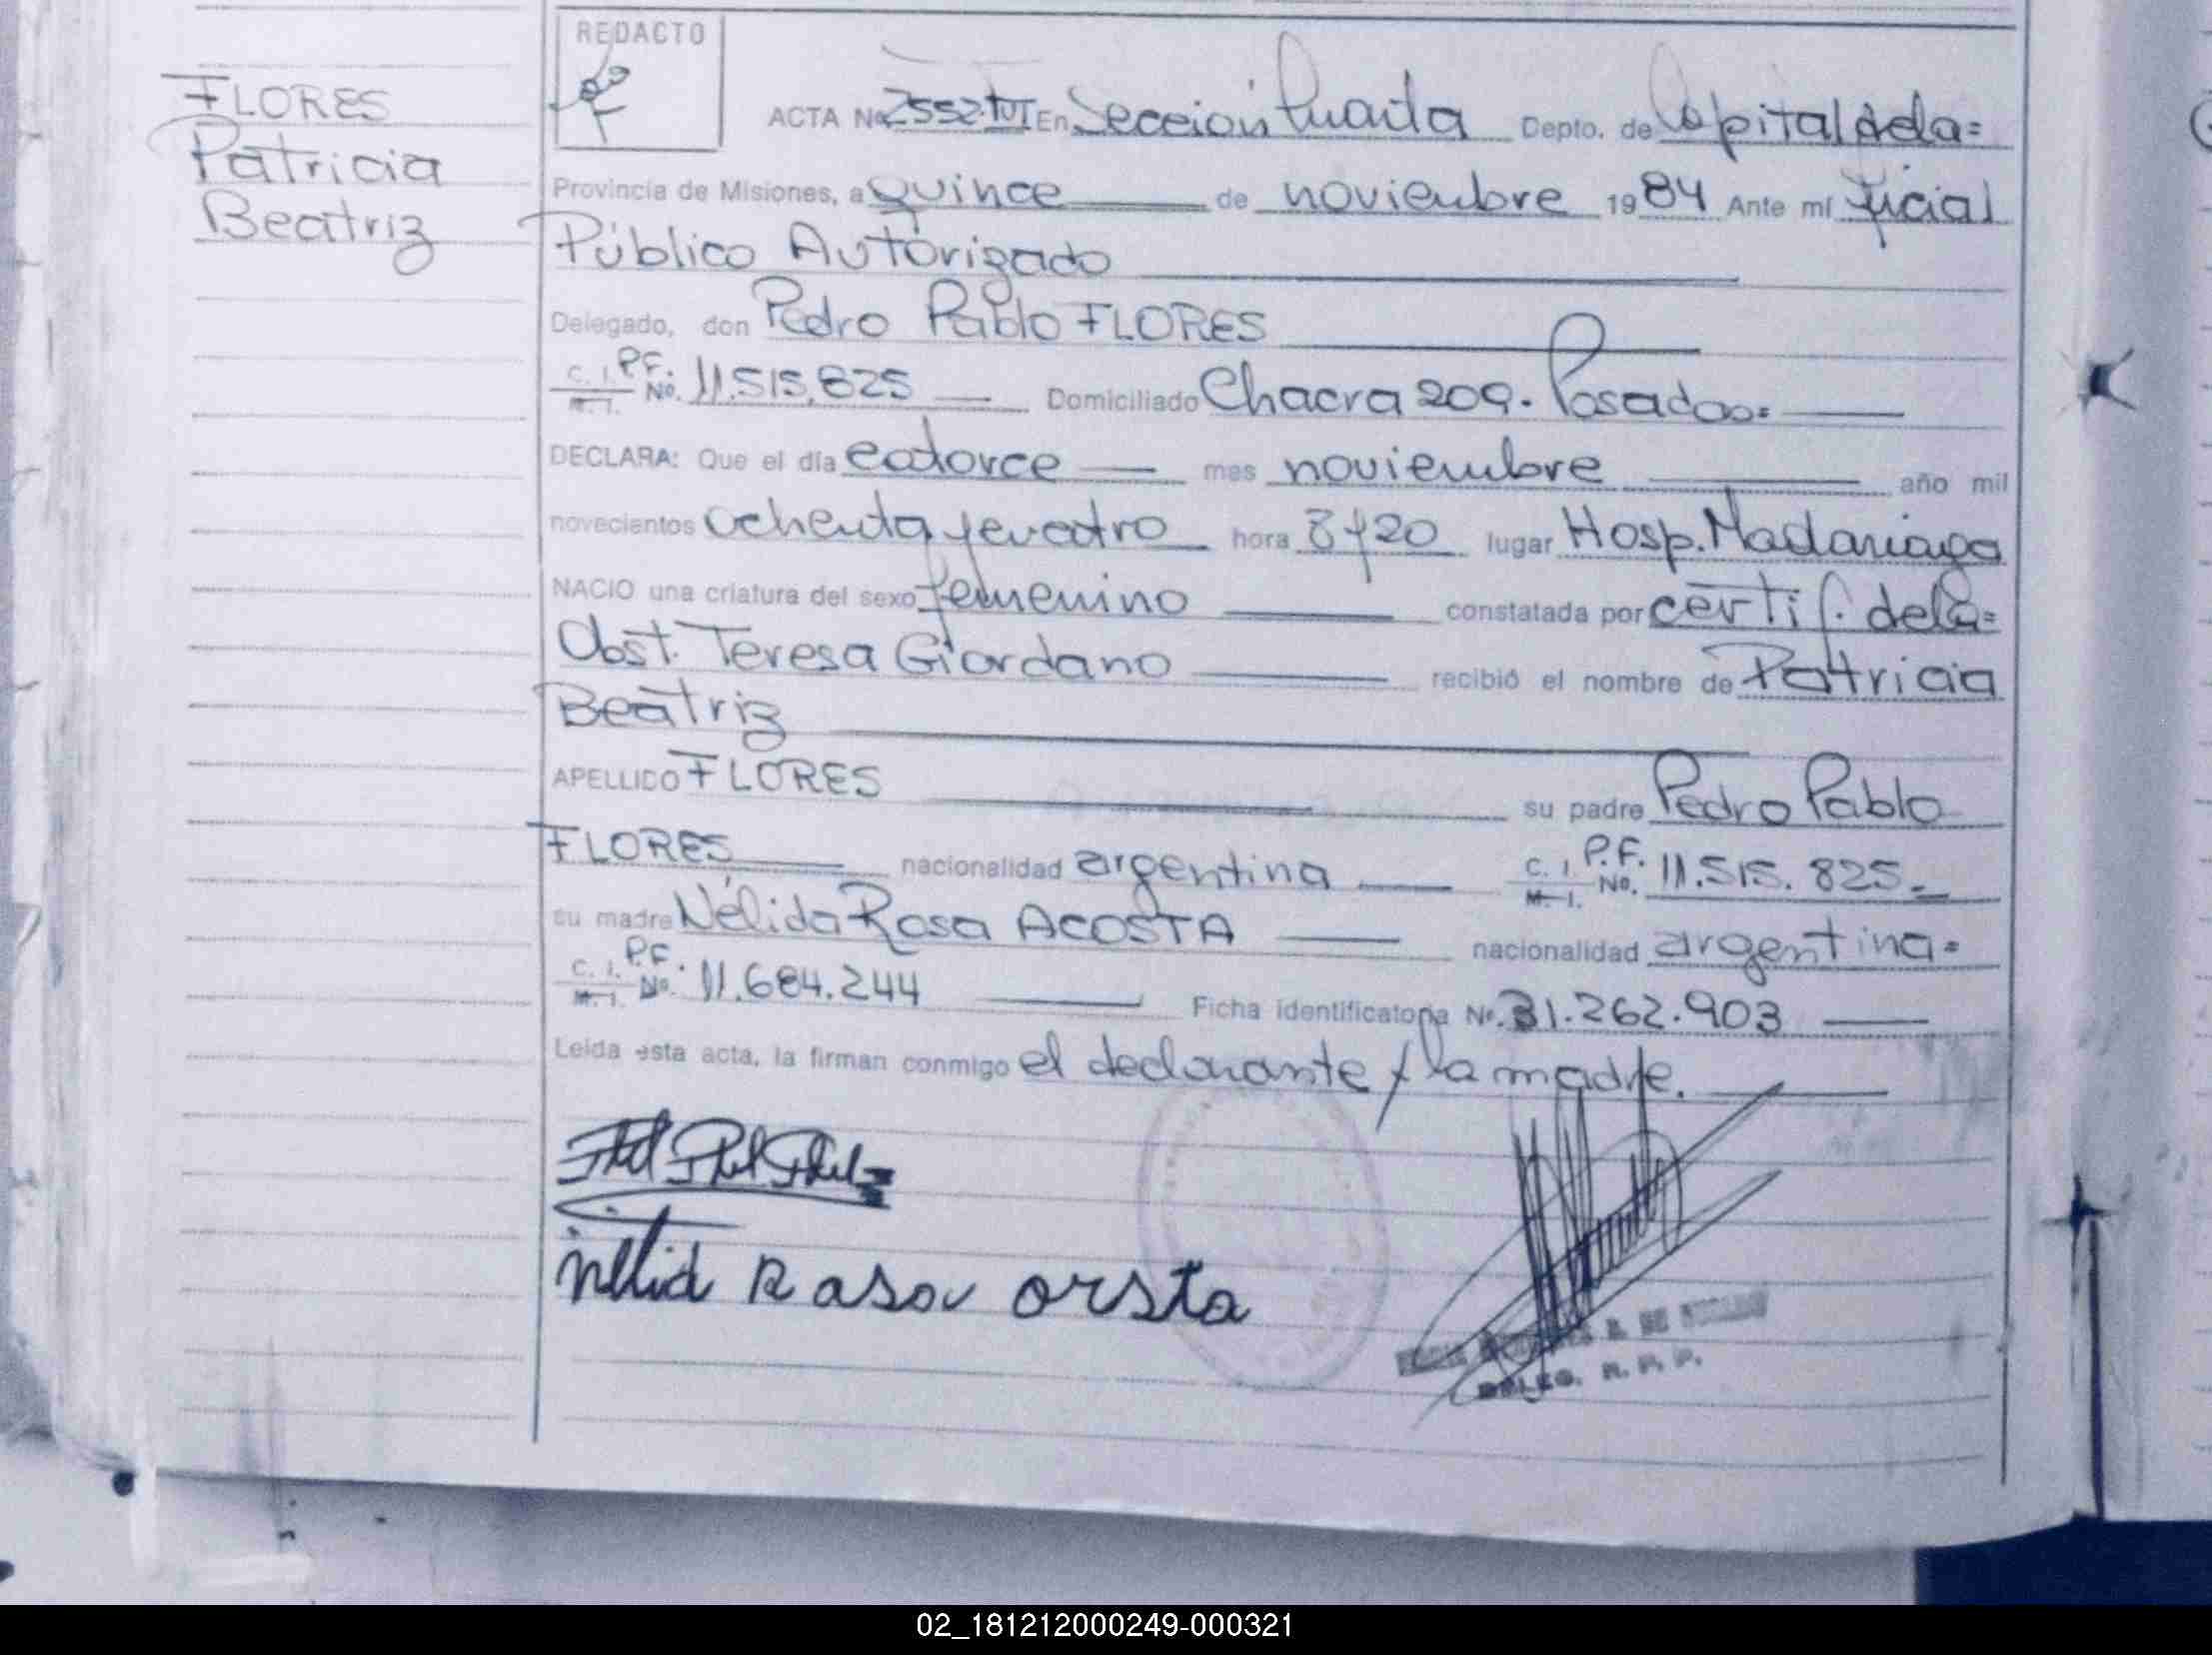 REDACTO
FLORES
Patricia
Beatriz
ACTA No 2552 tº VI En Sección Cuarta Depto. de Capital dela=
Provincia de Misiones, a quince de noviembre 1984 Ante mí ficial
Público Autorizado
Delegado, don Pedro Pablo FLORES
C. I. P.F. M. I. No. 11.515.825 Domiciliado Chacra 209. Posadas=
DECLARA: Que el día catorce mes noviembre año mil
novecientos ochenta y cuatro hora 8 y 20 lugar Hosp. Madariaga
NACIO una criatura del sexo femenino constatada por certif. dela=
Obst. Teresa Giordano recibió el nombre de Patricia
Beatriz
APELLIDO FLORES su padre Pedro Pablo
FLORES nacionalidad argentina C. I. P.F. M. I. No. 11.515.825.
su madre Nélida Rosa ACOSTA nacionalidad argentina=
C. I. P.F. M. I. No. 11.684.244 Ficha identificatoria No. 31.262.903
Leida esta acta, la firman conmigo el declarante y la madre.
DELEG. R. P. P.
02_181212000249-000321